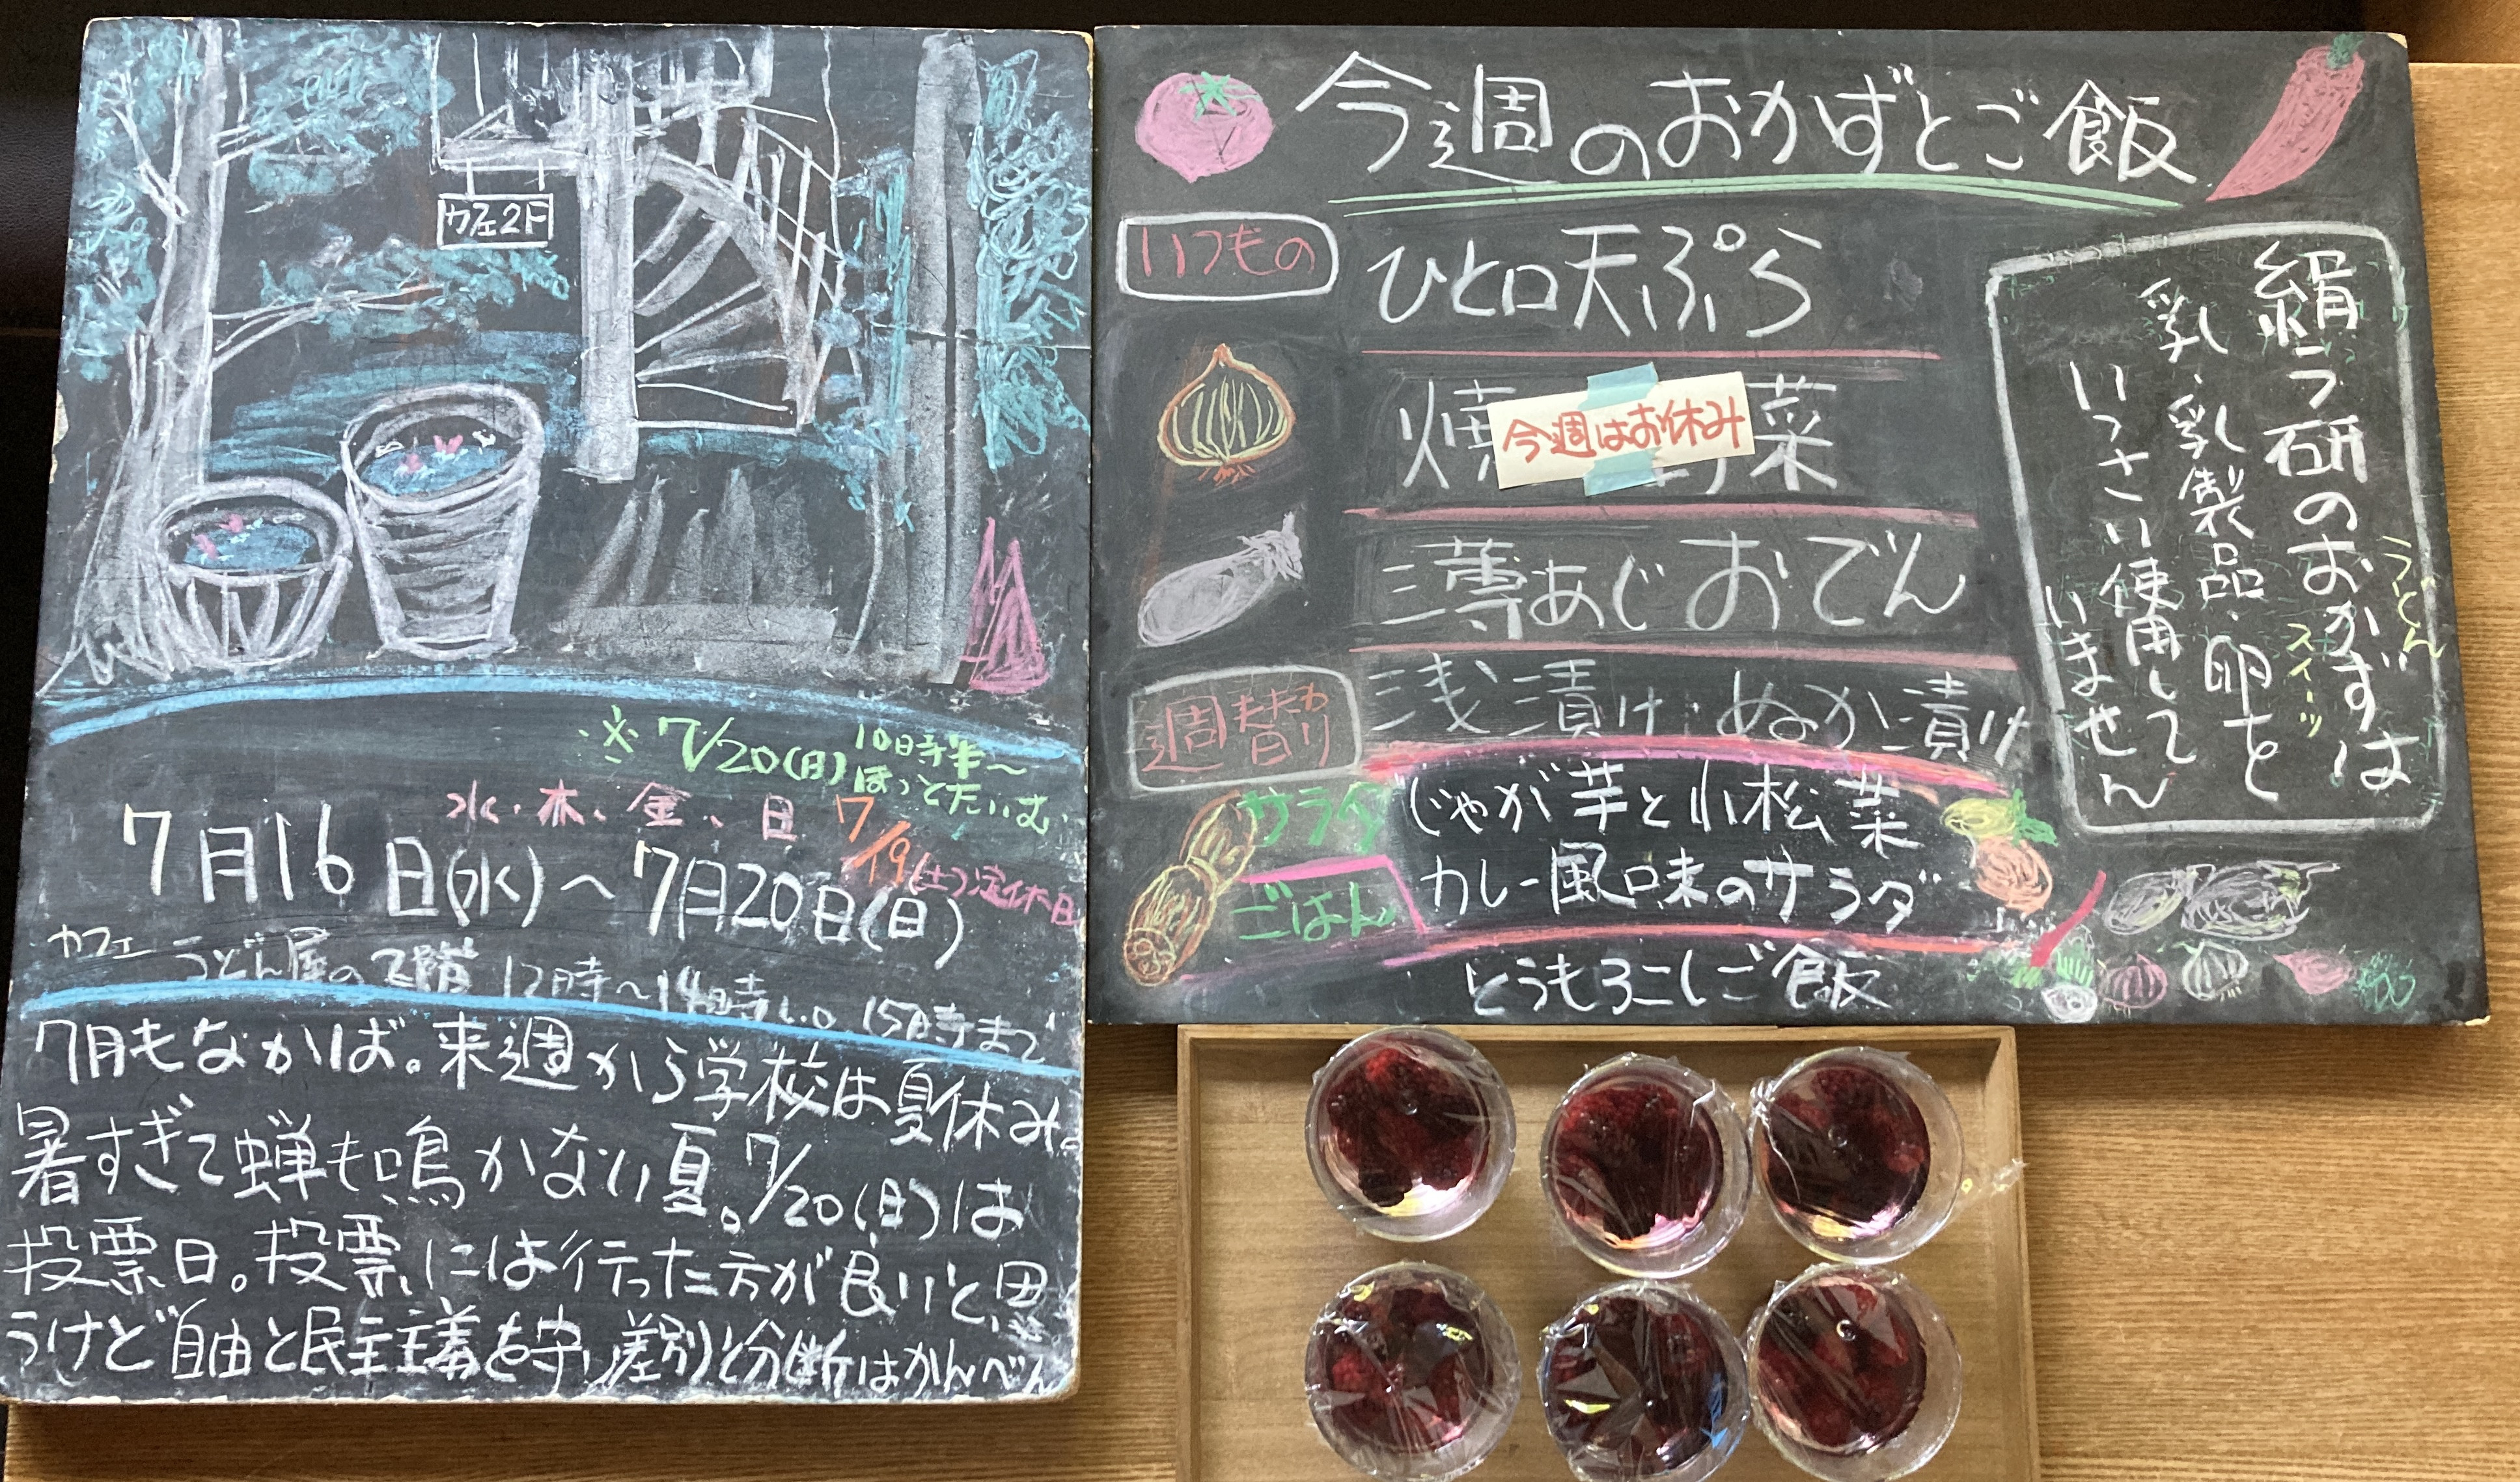 カフェ2F
※7/20(日)10時半〜
ほっとたいむ
水、木、金、日
7/19(土)定休日
7月16日(水)〜7月20日(日)
カフェ うどん屋の2階 12時〜14時L.O. 15時まで
7月もなかば。来週から学校は夏休み。
暑すぎて蝉も鳴かない夏。7/20(日)は
投票日。投票には行った方が良いと思
うけど自由と民主主義を守り差別と分断はかんべん
今週のおかずとご飯
いつもの
ひと口天ぷら
焼 菜
今週はお休み
三薄あじおでん
週替たわり
浅漬け、ぬか漬け
サラダ
じゃが芋と小松菜
カレー風味のサラダ
ごはん
とうもろこしご飯
絹ラ研のおかずは
うどん
スイーツ
乳、乳製品、卵を
いっさい使用して
いません